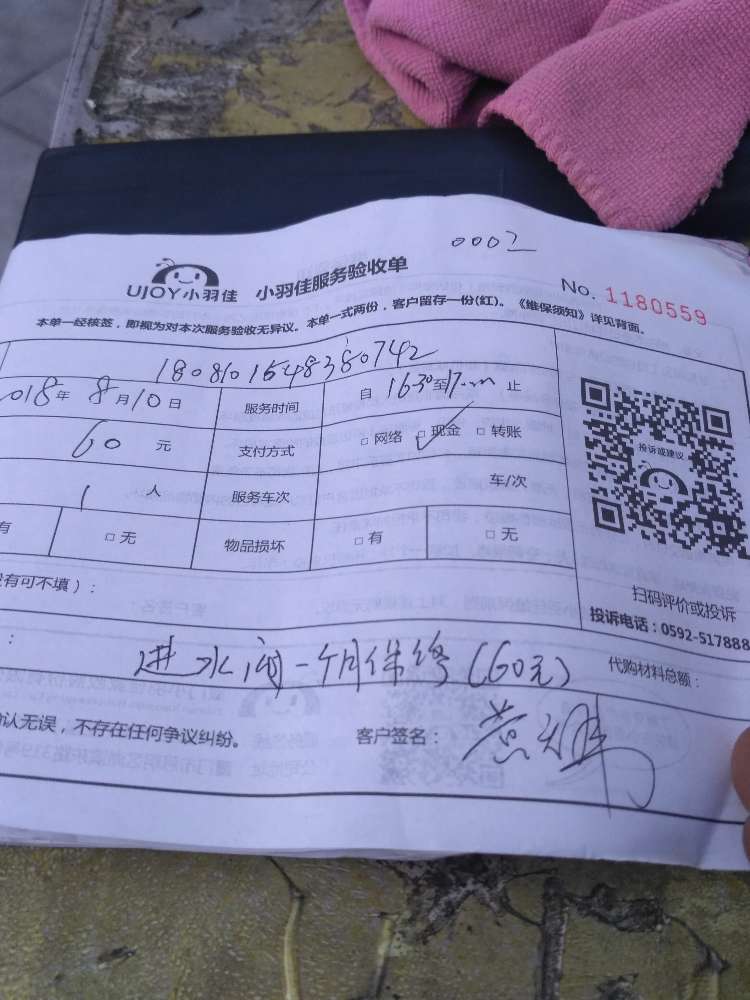 0002
UJOY小羽佳 小羽佳服务验收单
No. 1180559
本单一经核签，即视为对本次服务验收无异议。本单一式两份，客户留存一份(红)。《维保须知》详见背面。
180810164838 0742
2018年 8月10日 服务时间 自 16:30至17:00 止
60 元 支付方式 □ 网络 □ 现金 □ 转账
投诉或建议
1 人 服务车次 车/次
有 □ 无 物品损坏 □ 有 □ 无
没有可不填）：
扫码评价或投诉
投诉电话：0592-517888
： 进水阀一个月保修(60元) 代购材料总额：
确认无误，不存在任何争议纠纷。 客户签名：